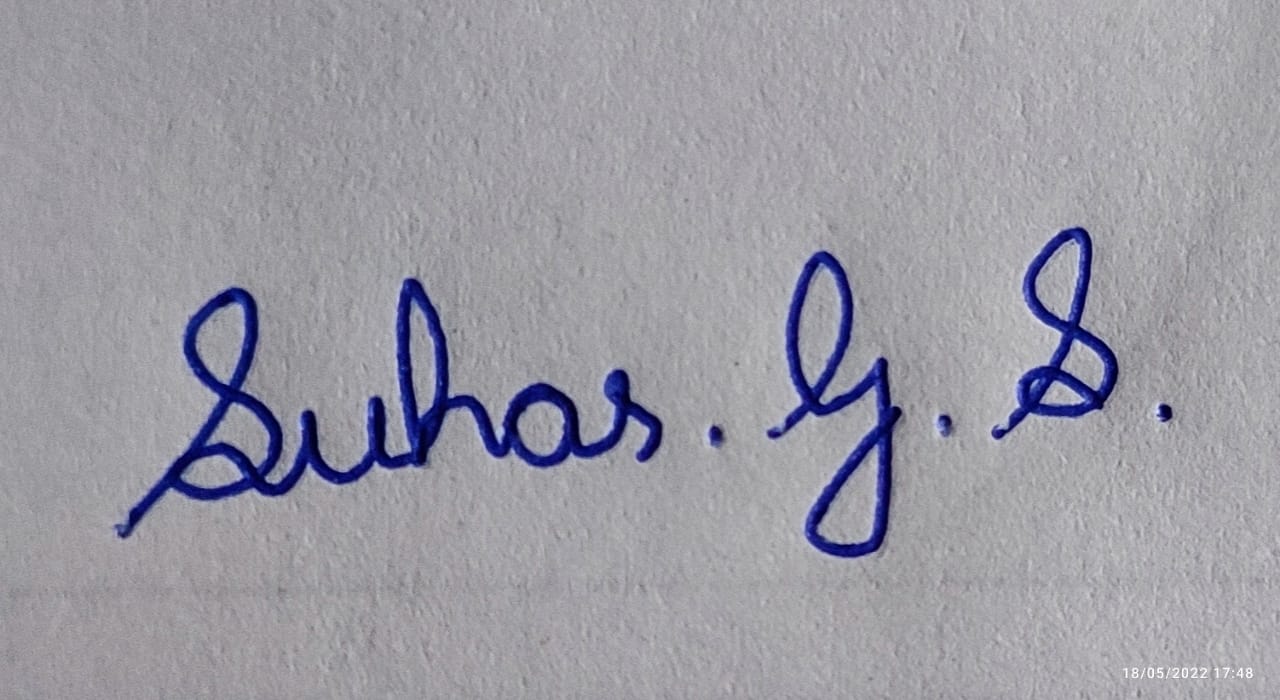 Suhas. G. S.
18/05/2022 17:48